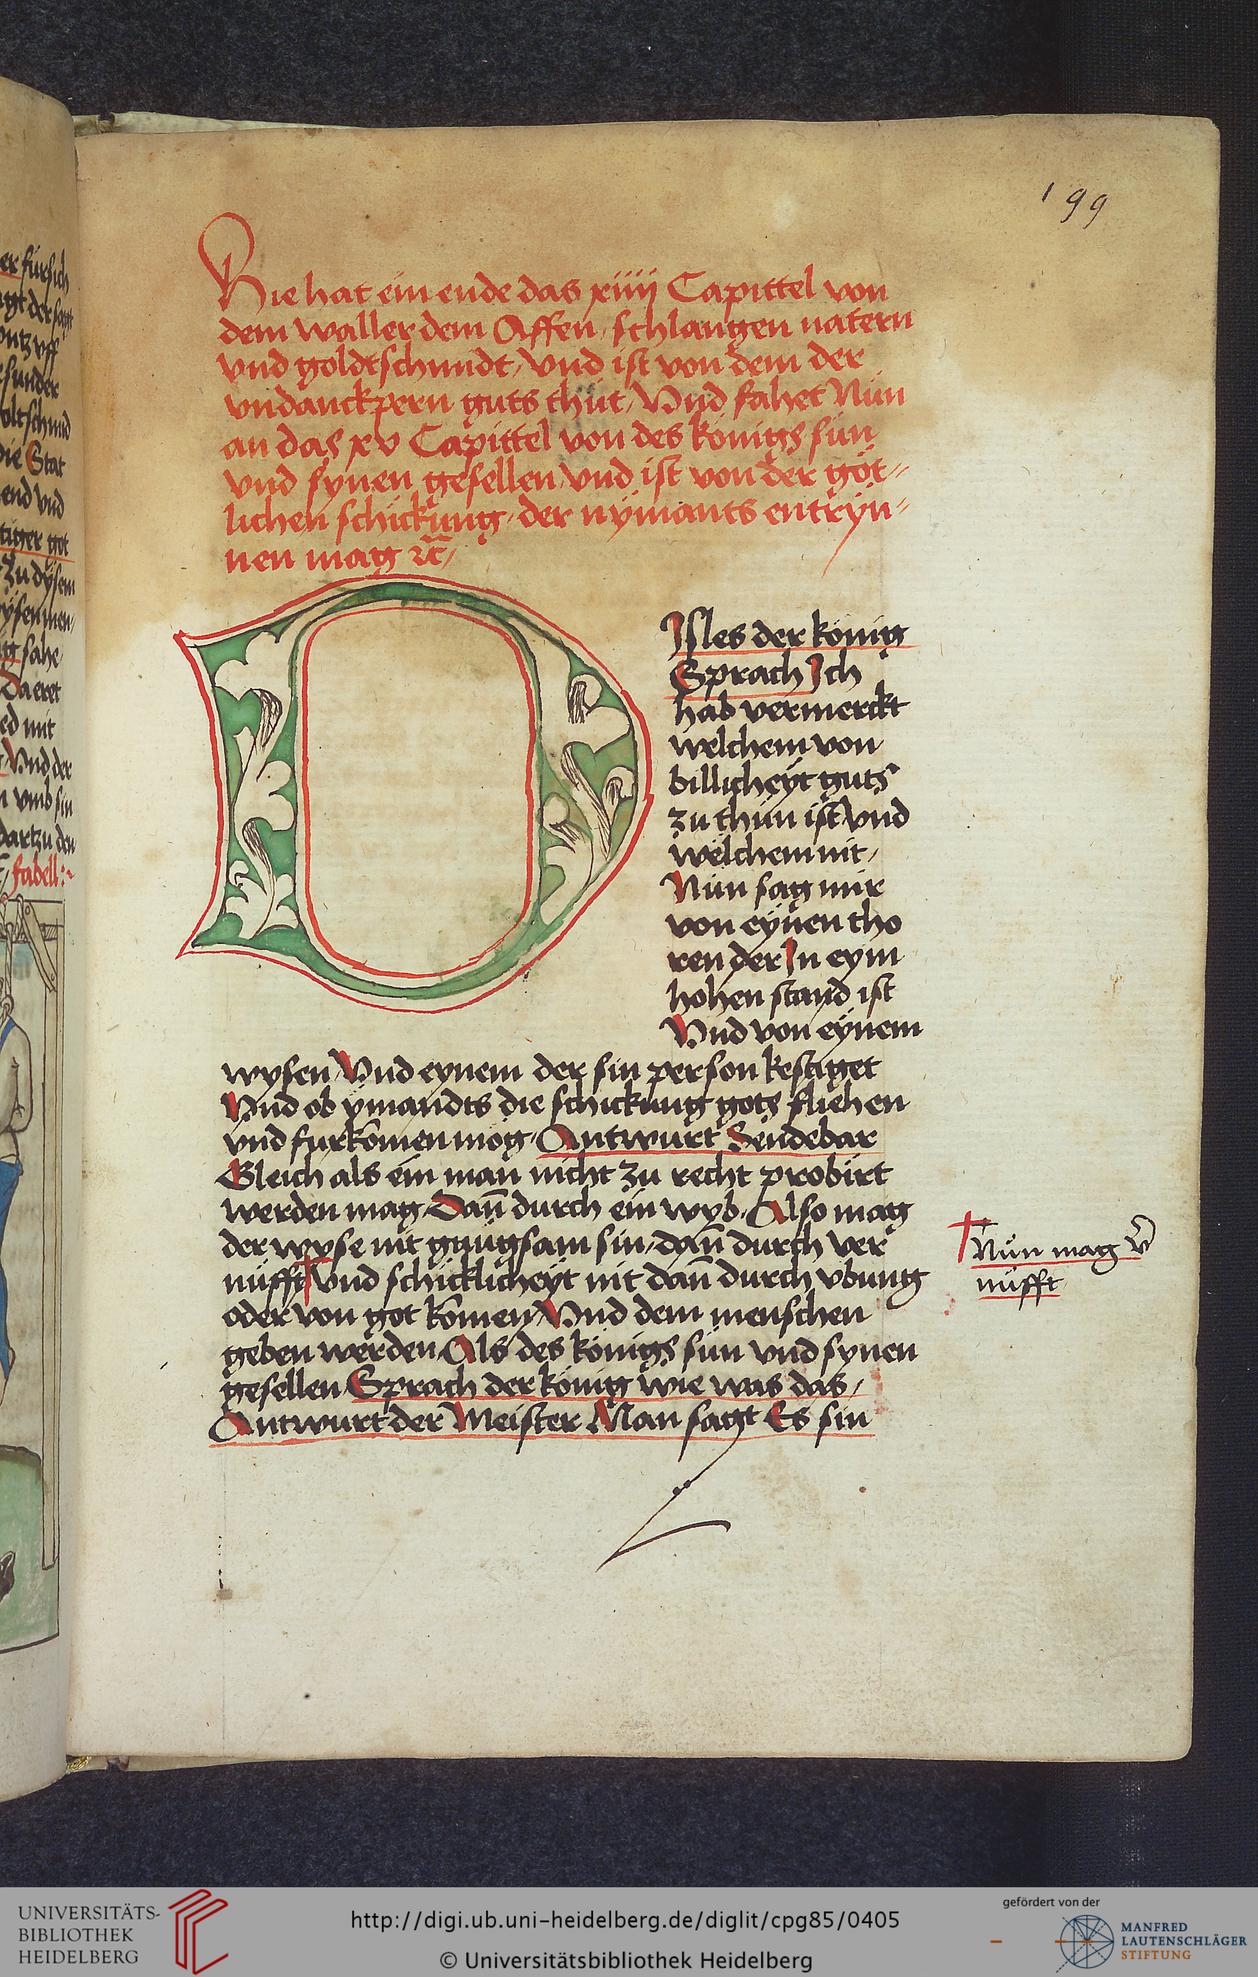 199
Hie hat ein ende das xiiij Capittel von
dem waller dem Affen, schlangen natern
vnd goldtschmidt, Vnd ist von dem der
vndanckpern guts thůt, Vnd fahet Nün
an das xv Capittel von des königs sün
vnd synen gesellen, vnd ist von der göt-
lichen schickung, der nymants entryn-
nen mag
D
Isles der könig
Sprach Ich
hab vermerckt
welchem von
billicheyt guts
zu thün ist vnd
welchem nit,
Nün sag mir
von eynen tho
ren der In eym
hohen stand ist
Vnd von eynem
wysen Vnd eynem der sin person kestiget
Vnd ob ymandts die schickung gots fliehen
vnd furkomen mög, Antwurt Sendebar
Gleich als ein man nicht zu recht probirt
werden mag, Dañ durch ein wyb, Also mag
der wyse nit gnügsam sin, dañ durch ver
nüfft† vnd schicklicheyt nit dañ durch vbung
oder von got komen Vnd dem menschen
geben werden, Als des königs sün vnd synen
gesellen Sprach der könig wie was das,
Antwurt der Meister Man sagt Es sin
† Nün mag v̄
nüfft
er fürsich
die Stat
end vnd
zu dysem
sahe
Da eret
mit
Vnd der
vmb sin
dartzu den
fabell:~
UNIVERSITÄTS-
BIBLIOTHEK
HEIDELBERG
http://digi.ub.uni-heidelberg.de/diglit/cpg85/0405
© Universitätsbibliothek Heidelberg
gefördert von der
MANFRED
LAUTENSCHLÄGER
STIFTUNG